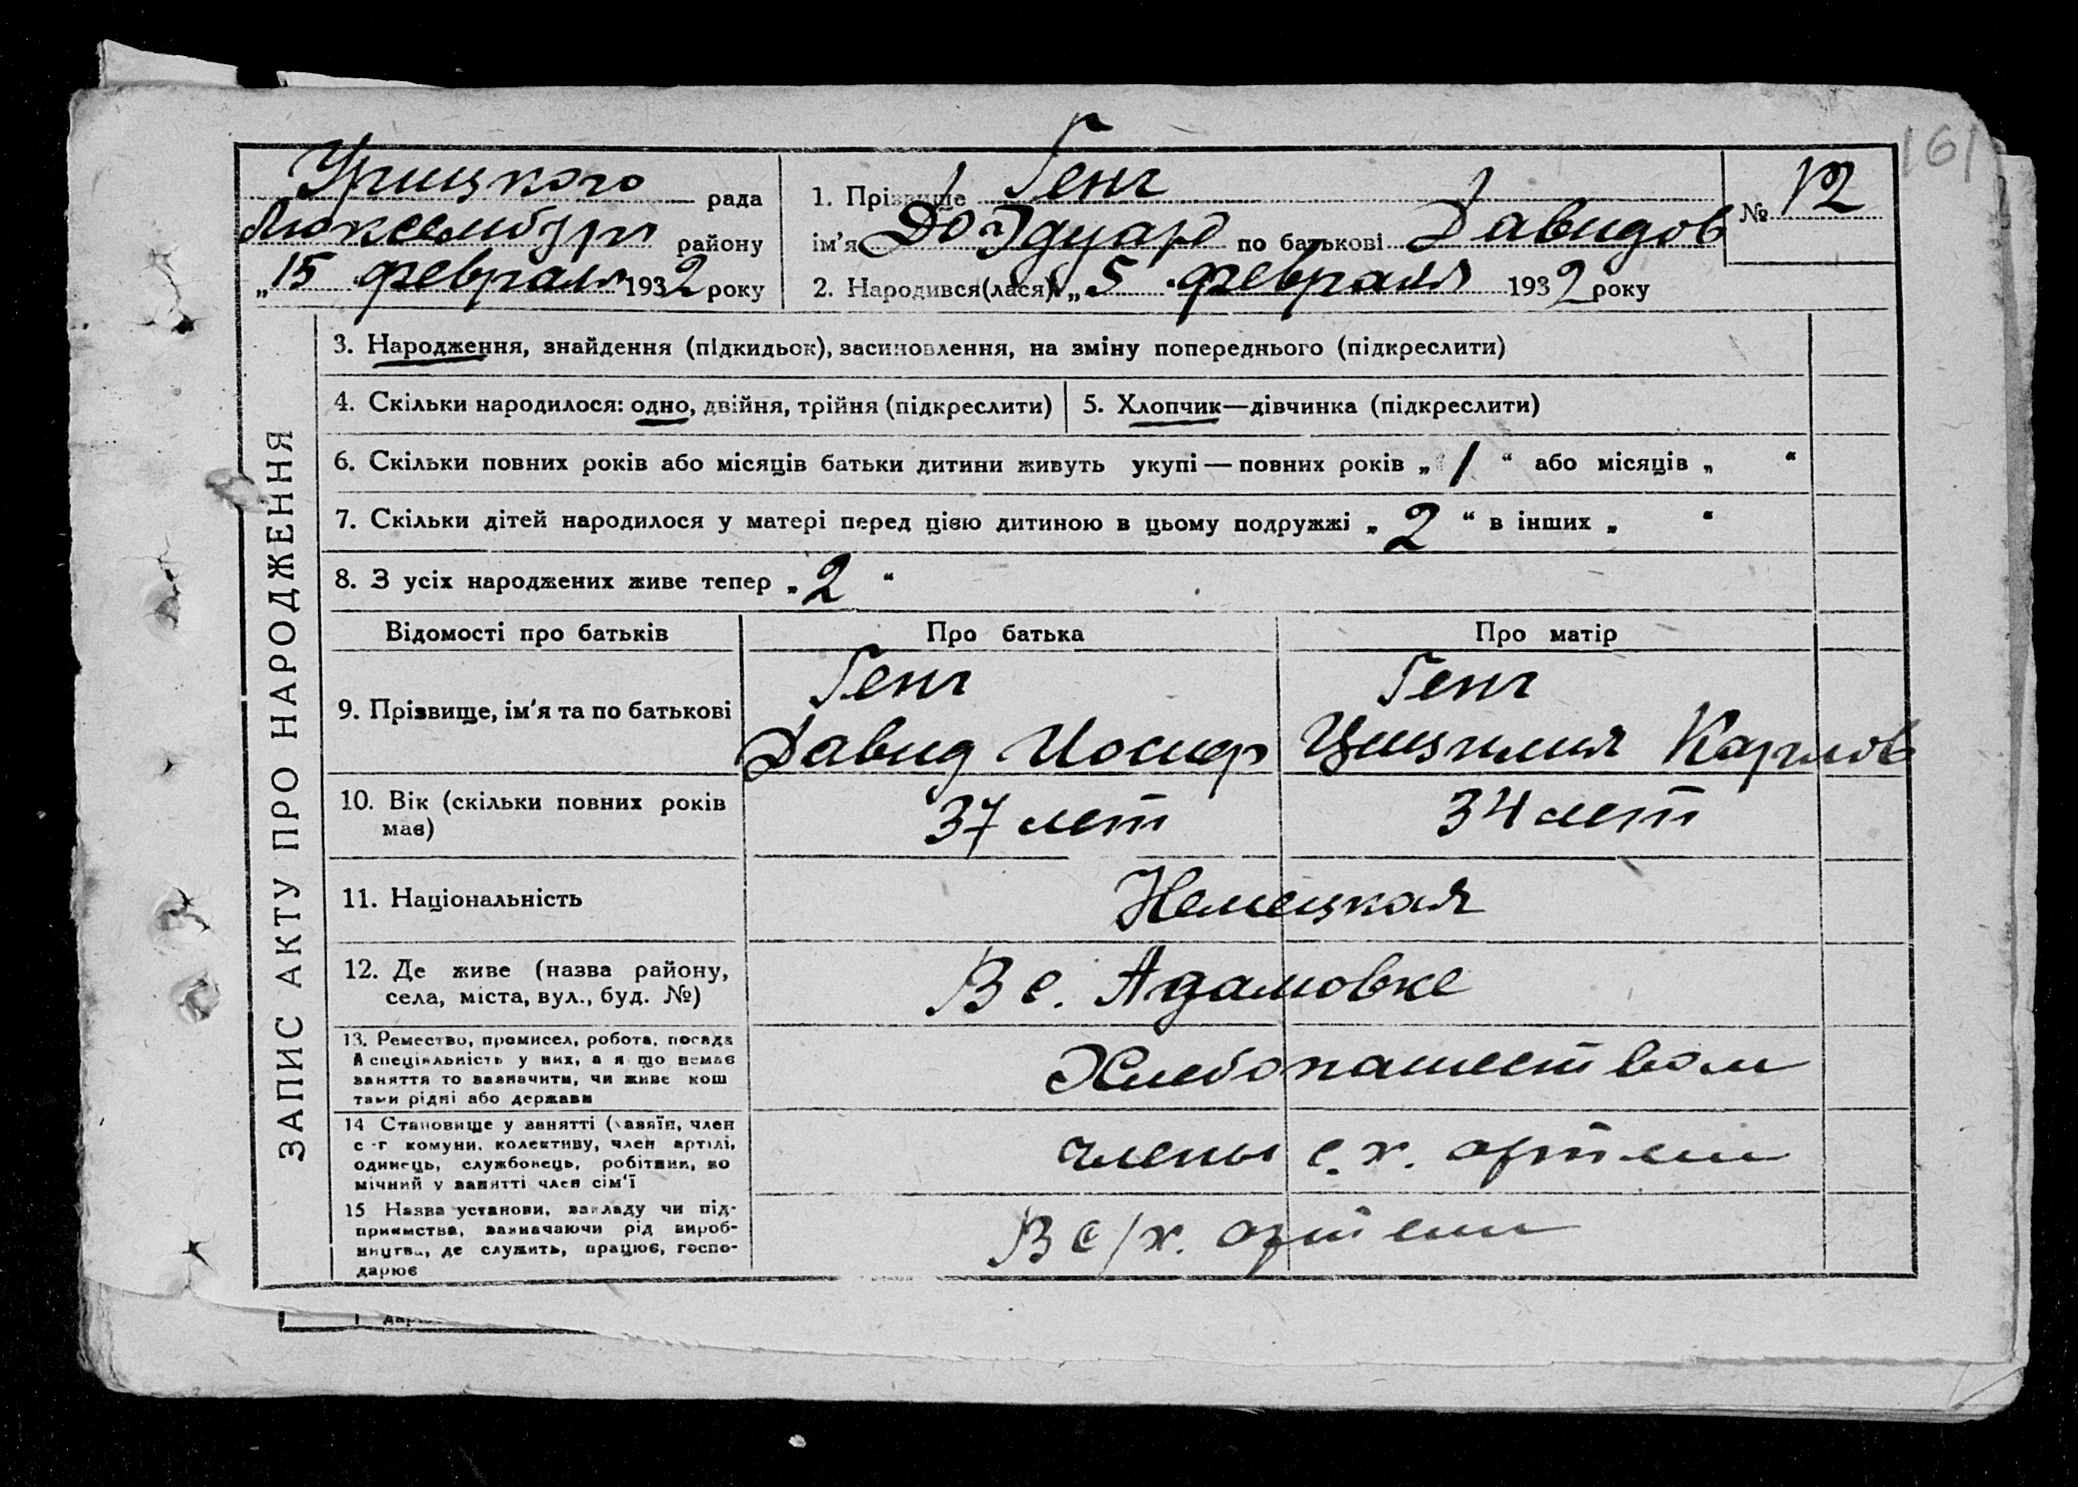 161
Урицкого рада
Люксембург району
„15 февраля 1932 року
1. Прізвище Генг
ім'я Эдуард по батькові Давидов
2. Народився(лася) „5 февраля 1932 року
№ 12
ЗАПИС АКТУ ПРО НАРОДЖЕННЯ
3. Народження, знайдення (підкидьок), засиновлення, на зміну попереднього (підкреслити)
4. Скільки народилося: одно, двійня, трійня (підкреслити)
5. Хлопчик—дівчинка (підкреслити)
6. Скільки повних років або місяців батьки дитини живуть укупі — повних років „ 1 “ або місяців „ “
7. Скільки дітей народилося у матері перед цією дитиною в цьому подружжі „ 2 “ в інших „ “
8. З усіх народжених живе тепер „ 2 “
Відомості про батьків
Про батька
Про матір
9. Прізвище, ім'я та по батькові
Генг
Давид Иосиф
Генг
Цицилия Карлов
10. Вік (скільки повних років
має)
37 лет
34 лет
11. Національність
Немецкая
12. Де живе (назва району,
села, міста, вул., буд. №)
В с. Адамовке
13. Ремество, промисел, робота, посада
й спеціяльність у них, а якщо немає
заняття то зазначити, чи живе кош
тами рідні або держави
Хлебопашеством
14 Становище у занятті (хазяїн, член
с-г комуни, колективу, член артілі,
одинець, службовець, робітник, по
мічний у занятті член сім'ї
члены с.х. артели
15 Назва установи, закладу чи під-
приємства, зазначаючи рід вироб-
ництва, де служить, працює, госпо-
дарює
В с/х. артели